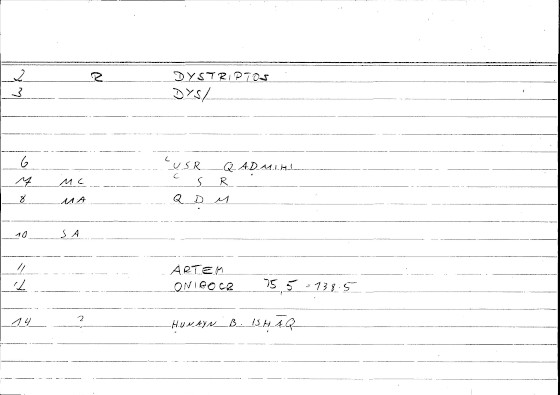 2 2 DYSTRIPTOS
3 DYS/
6 ʿUSR QADĪMIHI
7 MC ʿ S R
8 MA Q D M
10 SA
11 ARTEM
12 ONIROCR 75,5 - 138.5
14 ? ḤUNAYN B. ISḤĀQ